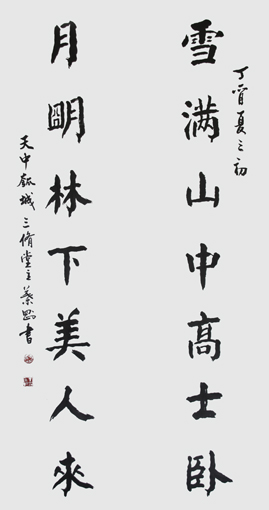 雪满山中高士卧
丁酉夏之初
月明林下美人来
天中瓠城三脩堂主蔡
书